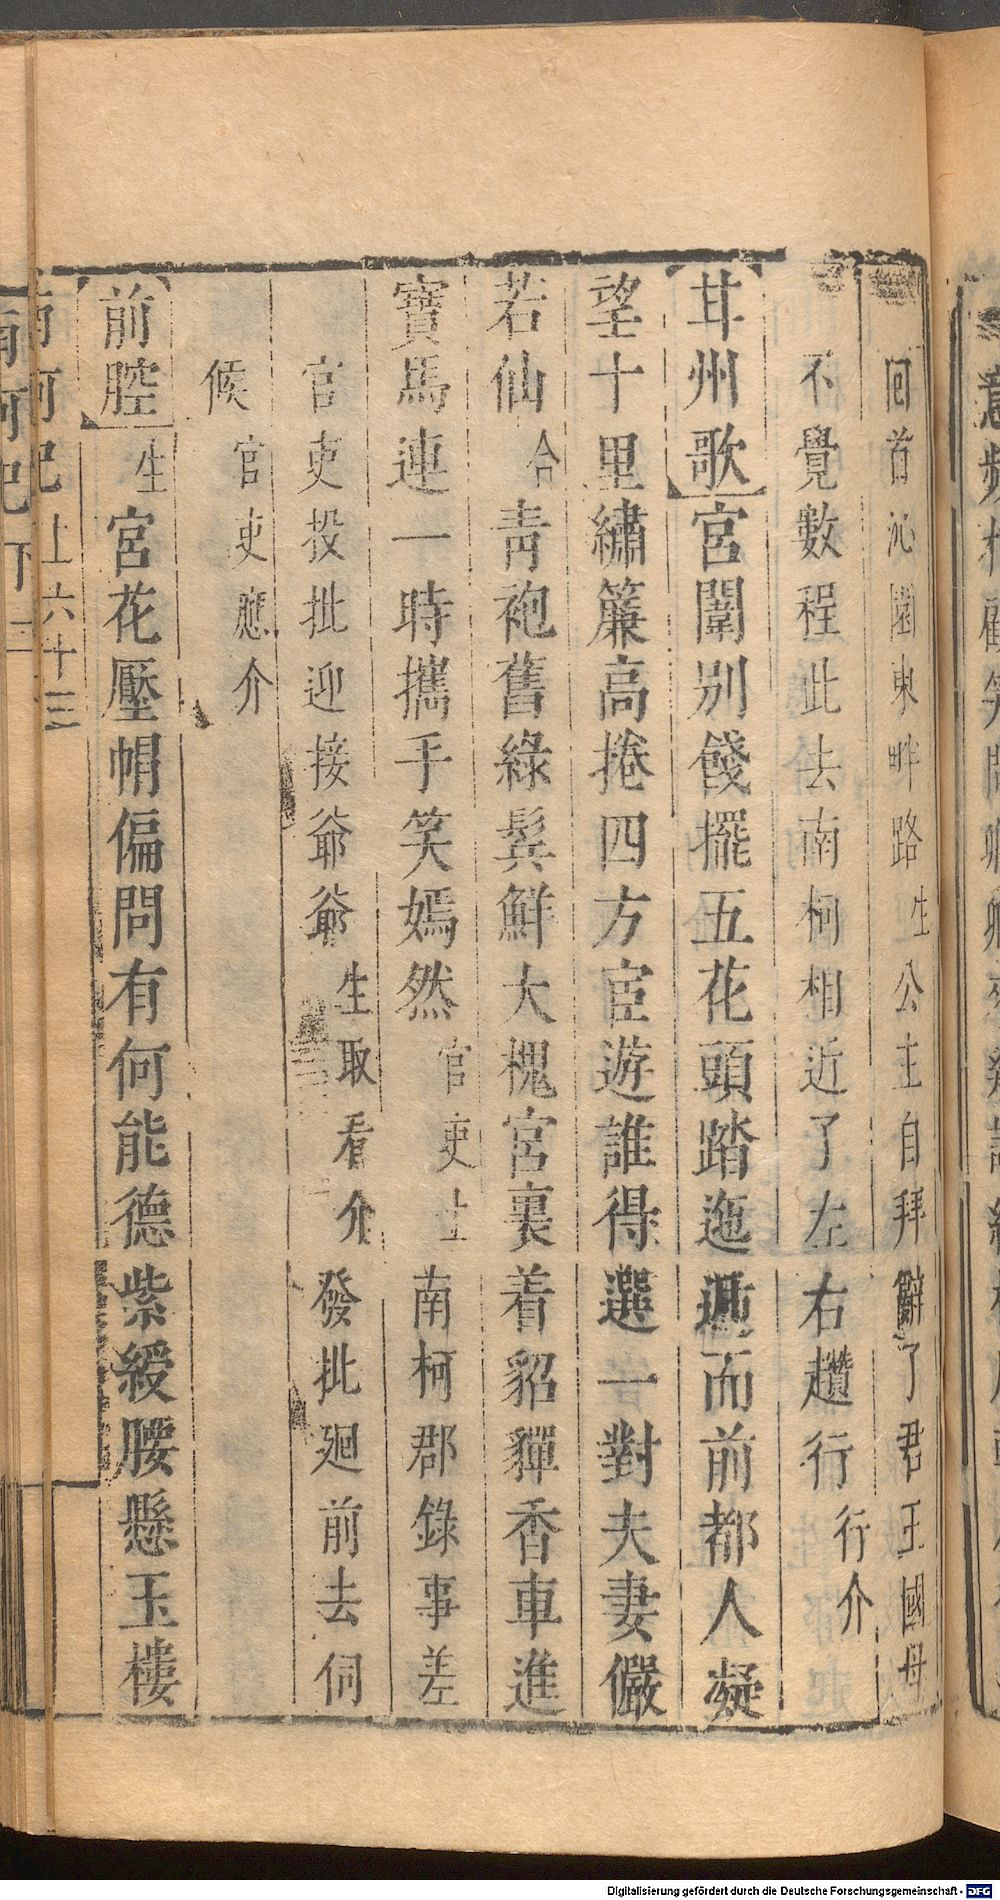 回首沁園東畔路生公主自拜辭了君王國母
不覺數程此去南柯相近了左右趲行行介
甘州歌宮闈別餞擺五花頭踏迤邐而前都人凝
望十里繡簾高捲四方宦遊誰得選一對夫妻儼
若仙合靑袍舊綠鬂鮮大槐宮裏着貂蟬香車進
寶馬連一時攜手笑嫣然官吏上南柯郡錄事差
官吏投批迎接爺爺生取看介發批廻前去伺
候官吏應介
前腔生宮花壓帽偏問有何能德紫綬腰懸玉樓
南柯記上六十三
南柯記下二
Digitalisierung gefördert durch die Deutsche Forschungsgemeinschaft - DFG